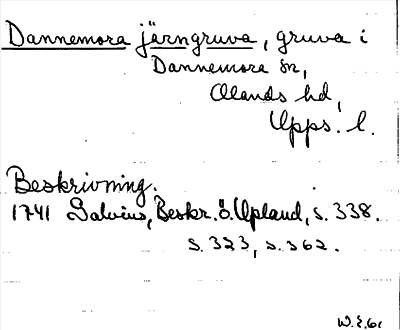 Dannemora järngruva, gruva i
Dannemora sn,
Olands hd,
Upps. l.
Beskrivning.
1741 Salvius, Beskr. ö. Upland, s. 338.
s. 323, s. 362.
W.E.61